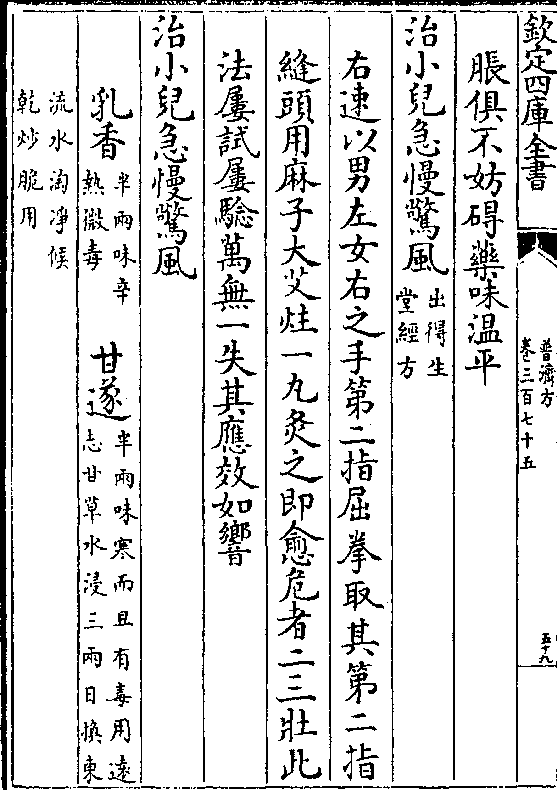 欽定四庫全書
普濟方
卷三百七十五
五十九
脹俱不妨碍藥味温平
治小兒急慢驚風
出得生
堂經方
右速以男左女右之手第二指屈拳取其第二指
縫頭用麻子大艾炷一九灸之即愈危者二三壯此
法屢試屢驗萬無一失其應效如響
治小兒急慢驚風
乳香
半兩味辛
熱微毒
甘遂
半兩味寒而且有毒用遠
志甘草水浸三兩日換東
流水淘凈候
乾炒脆用